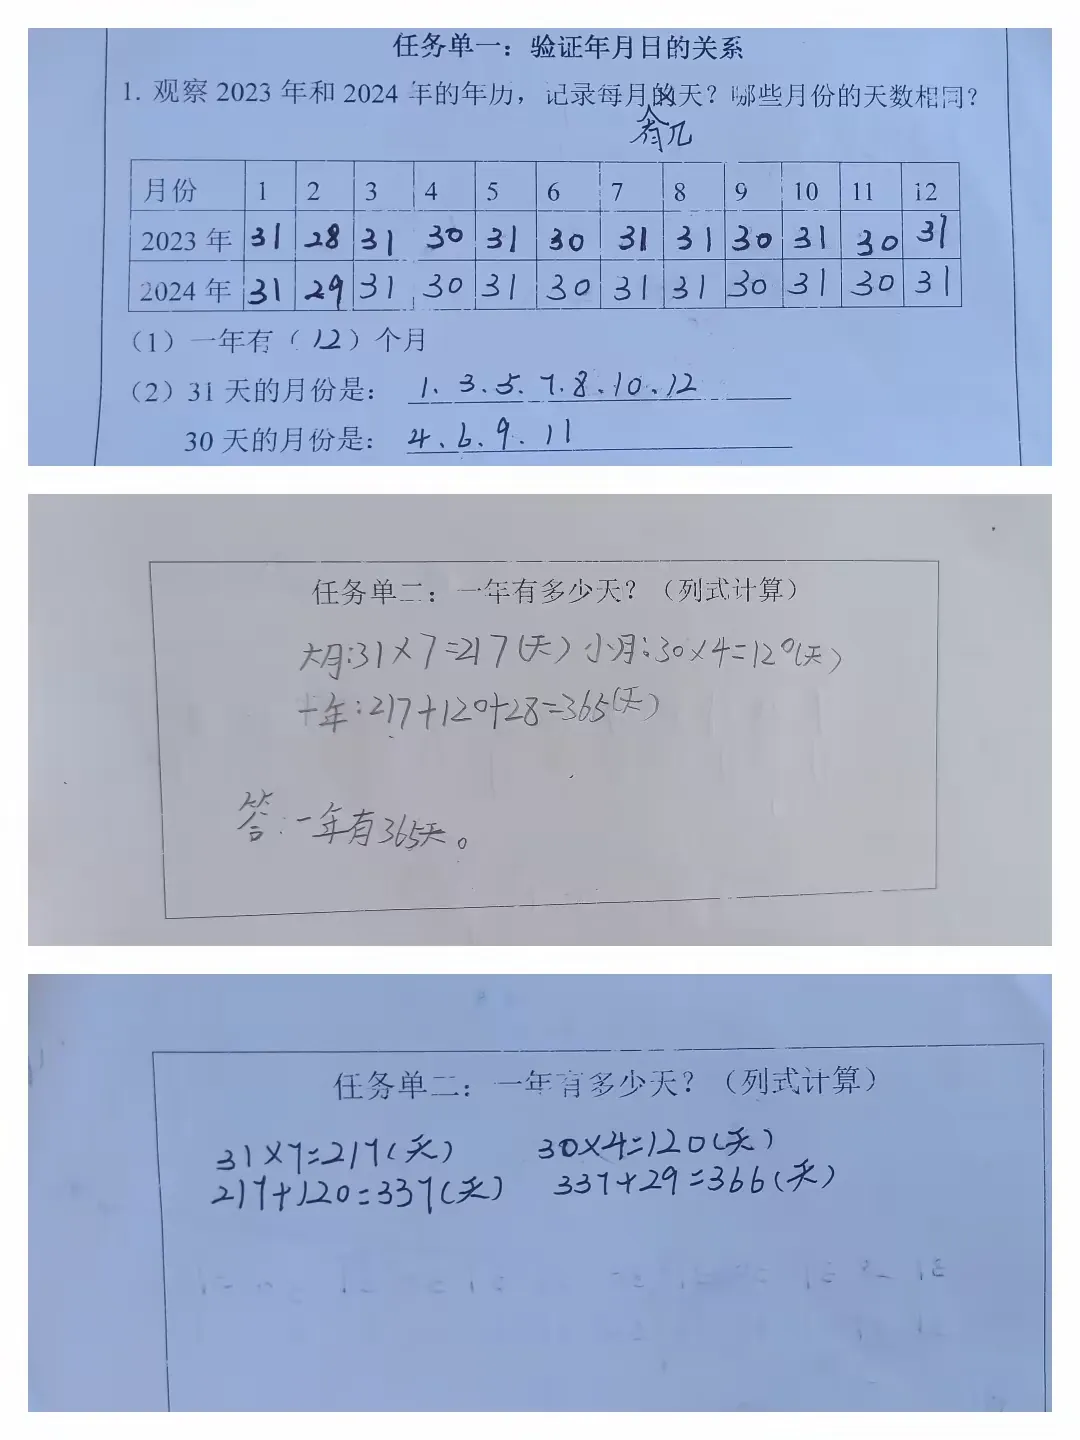 任务单一：验证年月日的关系
1. 观察 2023 年和 2024 年的年历，记录每月的天？哪些月份的天数相同？
有几
月份 1 2 3 4 5 6 7 8 9 10 11 12
2023 年 31 28 31 30 31 30 31 31 30 31 30 31
2024 年 31 29 31 30 31 30 31 31 30 31 30 31
（1）一年有（12）个月
（2）31 天的月份是： 1、3、5、7、8、10、12
30 天的月份是： 4、6、9、11
任务单二：一年有多少天？（列式计算）
大月:31×7=217(天) 小月:30×4=120(天)
年:217+120+28=365(天)
答:一年有365天。
任务单二：一年有多少天？（列式计算）
31×7=217(天) 30×4=120(天)
217+120=337(天) 337+29=366(天)